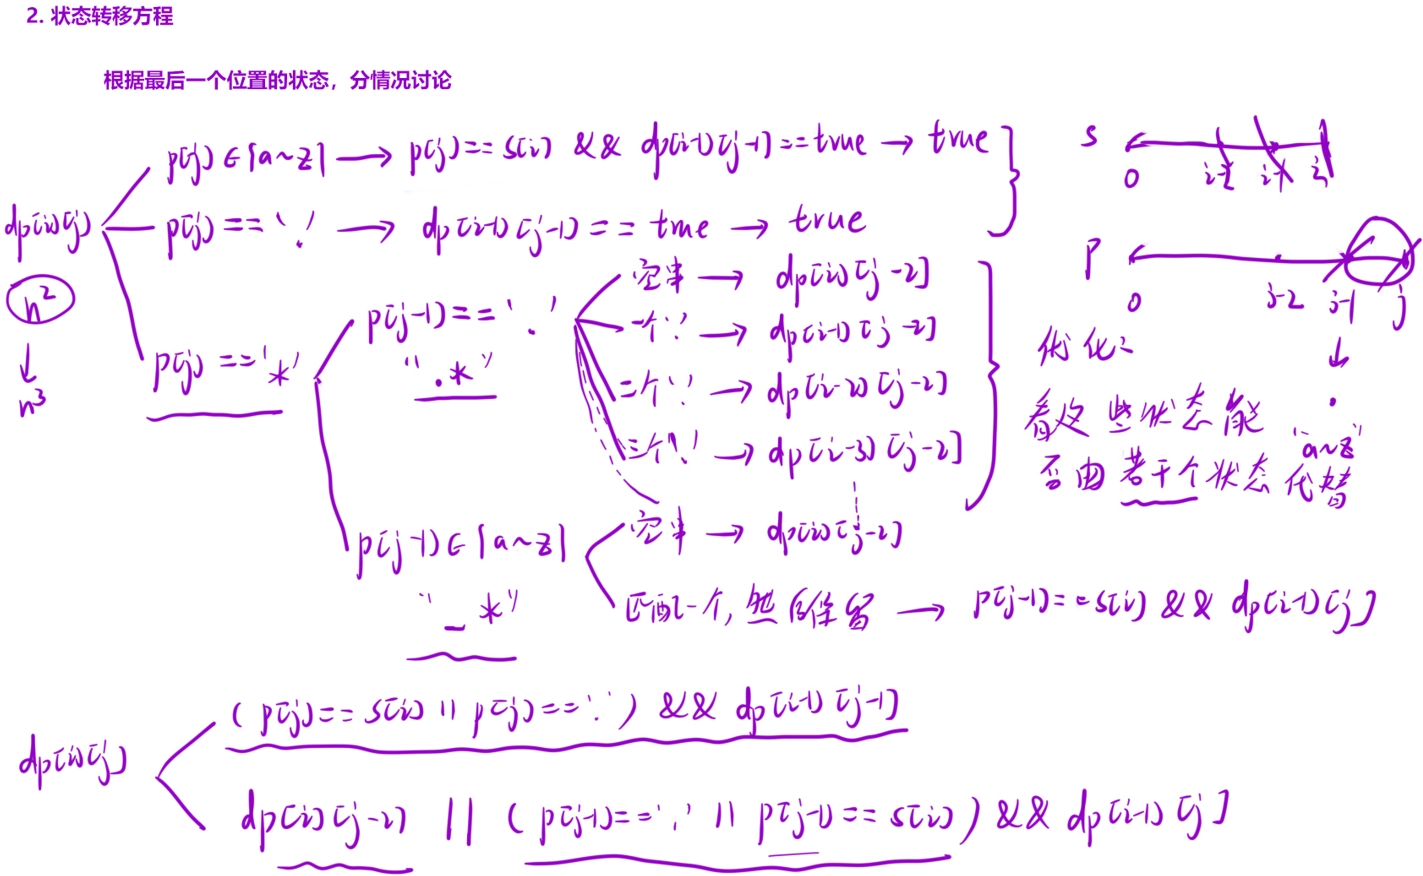 2. 状态转移方程
根据最后一个位置的状态，分情况讨论
dp[i][j]
p[j] ∈ [a~z] → p[j] == s[i] && dp[i-1][j-1] == true → true
p[j] == '.' → dp[i-1][j-1] == true → true
n²
↓
n³
p[j] == '*'
p[j-1] == '.'
".*"
空串 → dp[i][j-2]
一个'.' → dp[i-1][j-2]
二个'.' → dp[i-2][j-2]
三个'.' → dp[i-3][j-2]
p[j-1] ∈ [a~z]
"_*"
空串 → dp[i][j-2]
匹配一个, 然后保留 → p[j-1] == s[i] && dp[i-1][j]
s
0 i-2 i-1 i
p
0 j-2 j-1 j
↓
.
"a~z"
优化:
看这些状态能
否由若干个状态代替
dp[i][j]
(p[j] == s[i] || p[j] == '.') && dp[i-1][j-1]
dp[i][j-2] || (p[j-1] == '.' || p[j-1] == s[i]) && dp[i-1][j]